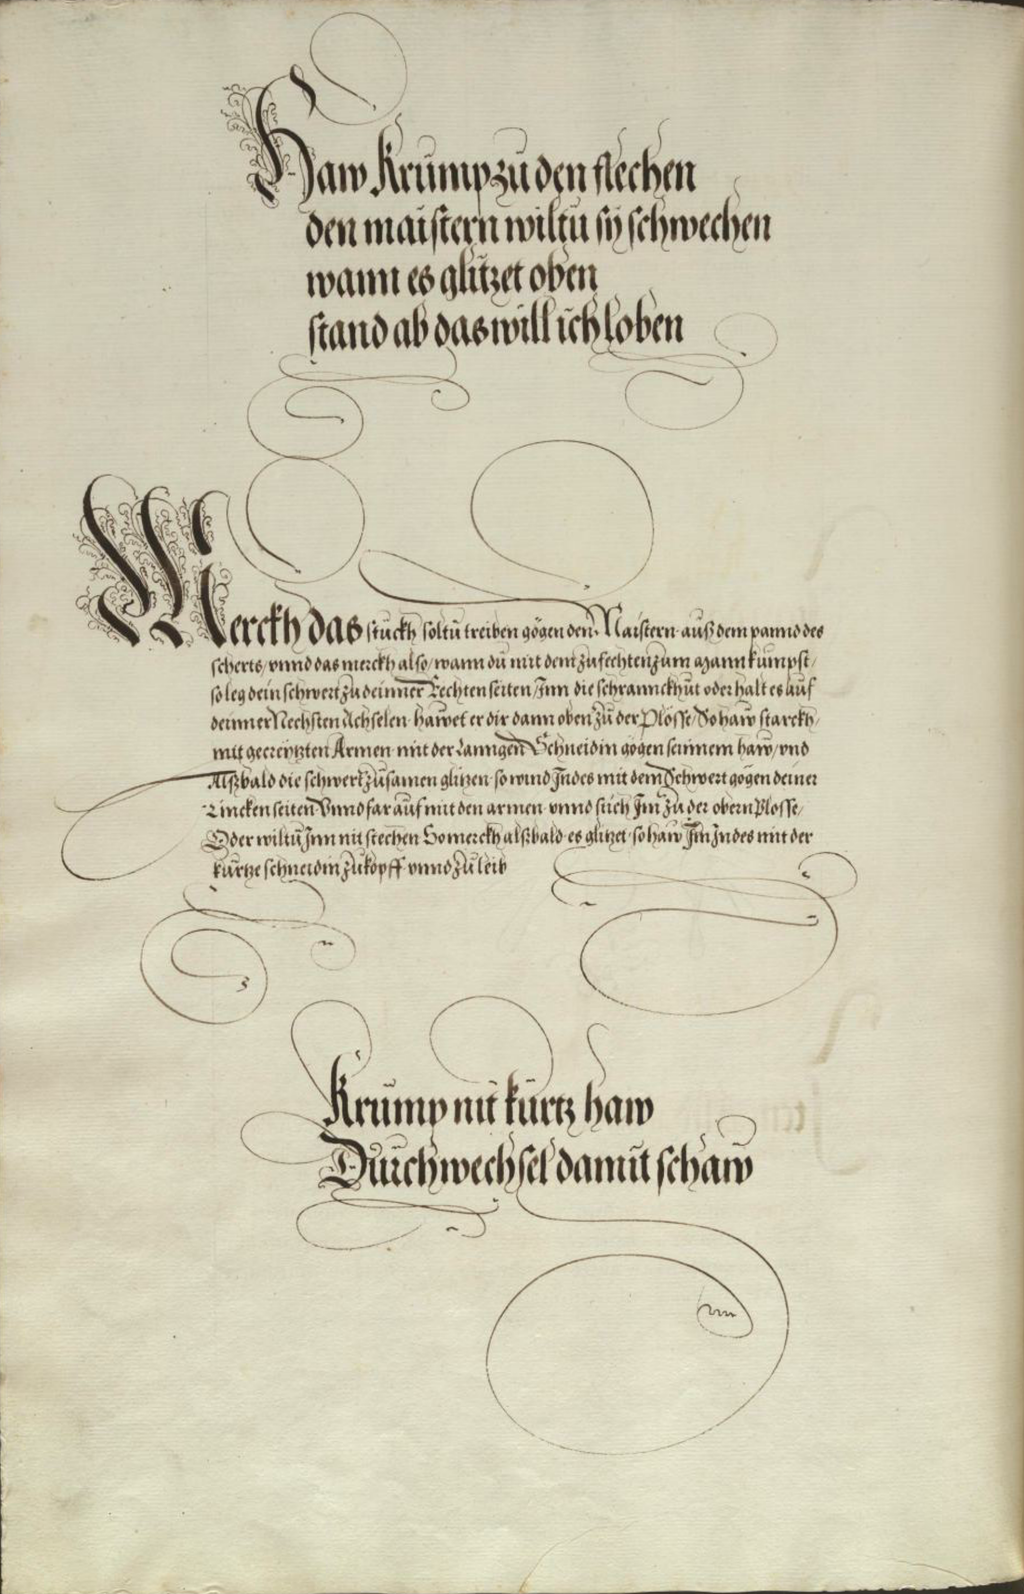 Haw krump zu den flechen
den maistern wiltu sy schwechen
wann es glitzet oben
stand ab das will ich loben
Merckh das stuckh soltu treiben gögen den Maistern auß dem pannd des
scherts, vnnd das merckh also, wann du mit dem zufechten zum Mann kumpst,
so leg dein schwert zu deinner Rechten seiten, Inn die schranckhut oder halt es auf
deinner Rechsten Achselen. hawet er dir dann oben zu der Plosse, So haw starckh,
mit gecreytzten Armen mit der Lanngen Schneidin gögen seinnem haw, vnd
Alßbald die schwert zusamen glitzen so wind Indes mit dem Schwert gögen deiner
Lincken seiten Vnnd far auf mit den armen vnnd stich Im zu der obern Plosse,
Oder wiltu Inn nit stechen So merckh alßbald es glitzet so haw Im Indes mit der
kurtze schneidin zu kopff vnnd zu leib
Krump nit kurtz haw
Durchwechsel damit schaw